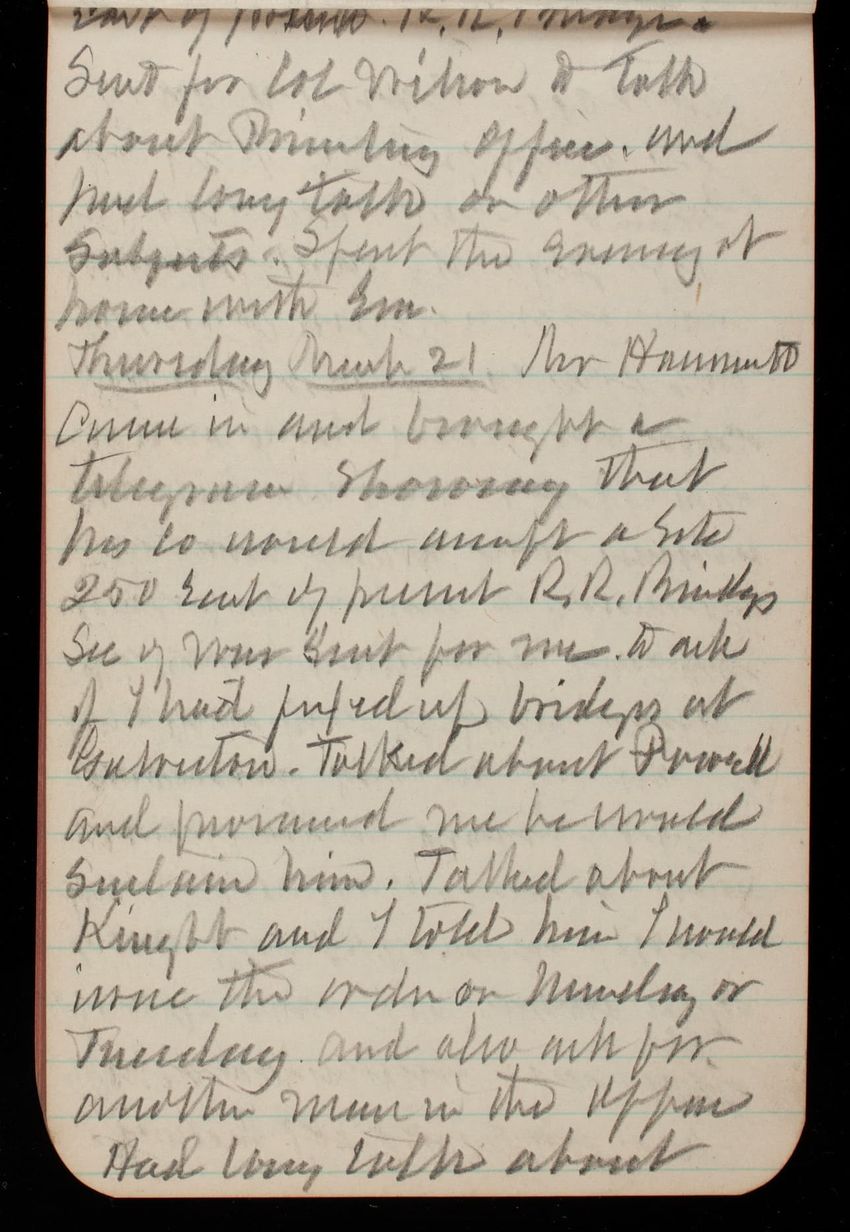 East of present R.R. Bridge.
Sent for Col Wilson to talk
about Printing Office. and
had long talk on other
Subjects. Spent the Evening at
home with Em.
Thursday March 21. Mr Hammett
Came in and brought a
telegram Showing that
his Co would accept a Site
250 East of present R.R. Bridge
Sec of War Sent for me. to ask
if I had fixed up bridges at
Galveston. Talked about Powell
and promised me he would
Sustain him. Talked about
Knight and I told him I would
issue the order on Monday or
Tuesday and also ask for
another man in the Office
Had long talk about